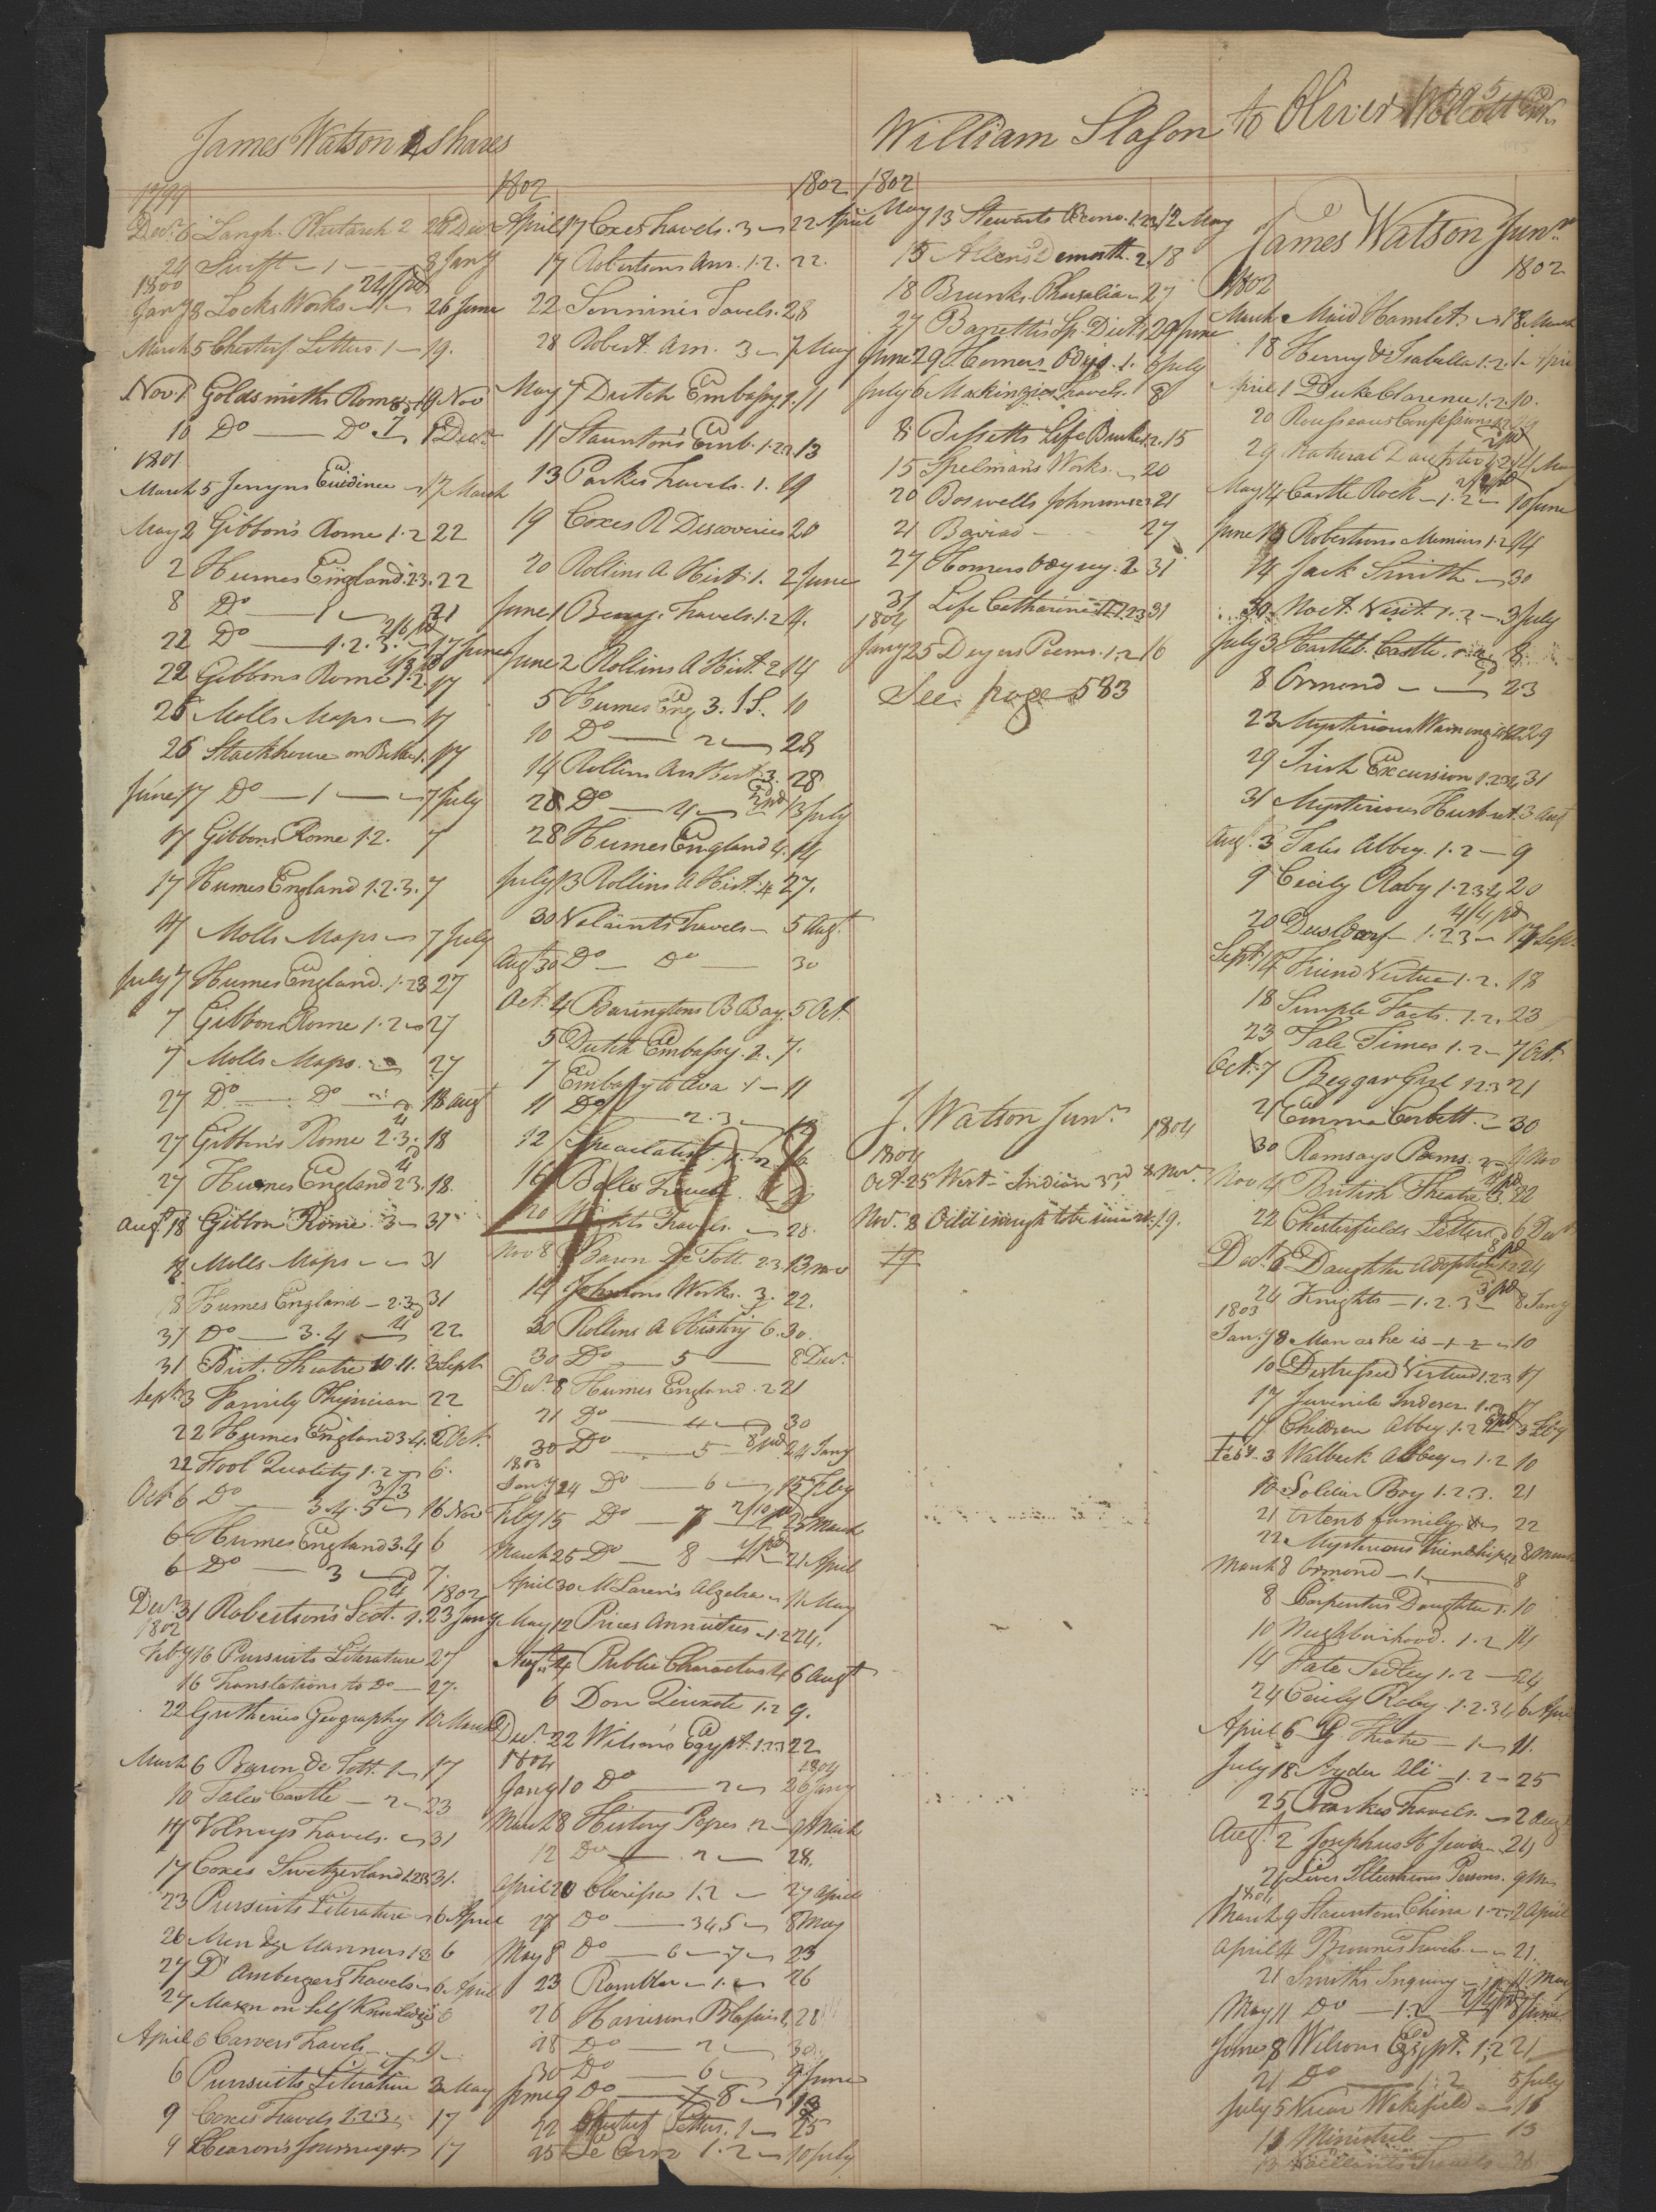 James Watson 2 Shares
1799 1802 1802
Decr 6 Langh. Plutarch 2 26 Decr
24 Swift — 1 — 8 Jany
1800 2/4 pd
Jany 8 Locks Works — 1 — 26 June
March 5 Chesterf Letters. 1 — 19.
Novr 1 Goldsmiths Rome 19 Nov
10 Do — Do 1 Decr
1801
March 5 Jenyns Evidence — 17 March
May 2 Gibbon's Rome 1.2 22
2 Humes England. 2.3. 22
8 Do — 1 — 21
22 Do — 1.2.3. 2/6 pd 17 June
22 Gibbons Rome 1.2. 17
26 Molls Maps — 17
26 Stackhouse on Bible 1. 17
June 17 Do — 1 — 7 July
17 Gibbons Rome 1.2. 7
17 Humes England 1.2.3. 7
17 Molls Maps — 7 July
July 7 Humes England. 1.23 27
7 Gibbons Rome 1.2 — 27
7 Molls Maps. — 27
27 Do — Do — 18 Augt
27 Gibbon's Rome 2.3. 18
27 Humes England 2.3. 18.
Augt 18 Gibbon Rome. 3 — 31
18 Molls Maps — 31
18 Humes England — 2.3 31
31 Do — 3.4 — 22
31 Brit. Theatre 10.11. 3 Sept
Sept 3 Family Physician 22
22 Humes England 3.4. 6 Oct.
22 Fool Quality 1.2 — 6.
Oct 6 Do — 3.4.5 — 3/3 16 Nov
6 Humes England 3.4 6
6 Do — 3 — 7. 1802
Decr 31 Robertson's Scot. 1. 23 Jany
1802
Feby 16 Pursuits Literature 27
16 Translations to Do — 27.
22 Gutheries Geography 10 March
March 6 Baron de Tott. 1 — 17
10 Tales Castle — 2 — 23
17 Volneys Travels. — 31
17 Coxes Switzerland 1.2.3 31.
23 Pursuits Literature — 6 April
26 Men & Manners 1.2 6
27 D'Ambergers Travels — 6 April
27 Mason on Self Knowledge 6
April 6 Carvers Travels — 9 —
6 Pursuits Literature 3 May
9 Coxes Travels 1.2.3 17
9 Hearon's Journey 17
April 17 Coxes Travels. 3 — 22 April
17 Robertsons Am. 1.2. 22.
22 Sonninis Tavels. 28
28 Robert. Am. 3 — 7 May
May 7 Dutch Embassy 1. 11
11 Staunton's Emb. 1.2.3 13
13 Parkes Travels. 1. 19
19 Coxes R Discoveries 20
20 Rollins A Hist. 1. 2 June
June 1 Travels. 1.2 4.
June 2 Rollins A Hist. 2. 14
5 Humes Eng 3. 10
10 Do — 2 — 28
14 Rollins An Hist. 3. 28
28 Do — 4 — 13 July
28 Humes England 4. 14
July 13 Rollins A Hist. 4 27.
30 Valiants Travels — 5 Augt
Augt 30 Do — Do — 30
Oct. 4 Baringtons B Bay. 5 Oct.
5 Dutch Embassy. 2. 7.
7 Embassy to Ava 1 — 11
11 Do — 2.3 — 12
12 Speculatist
16 Bells Travels
498
20 Travels. — 28.
Nov 8 Baron De Tott. 2.3. 13 Nov
14 Johnsons Works. 3. 22.
30 Rollins A History 6. 30.
30 Do — 5 — 8 Decr
Decr 8 Humes England. 2 21
21 Do — 4 — 30
30 Do — 5 8 pd 24 Jany
1803
Jany 24 Do — 6 — 15 Feby
Feby 15 Do — 7 2/10 pd 25 March
March 25 Do — 8 — 21 April
April 30 McLaren's Algebra — 11 May
May 12 Prices Annuities — 1.2 24.
Augt 4 Public Characters 4 6 Augt
6 Don Quixote 1.2 9.
Decr 22 Wilson's Egypt. 1.2.3 22
1804 1804
Jany 10 Do — 2 — 26 Jany
March 8 History Popes. 2 — March
12 Do — 2 — 28.
April 20 Clarissa 1.2 — 27 April
27 Do — 3 4 5 — 8 May
May 8 Do — 6 — 7 — 23
23 Rambler — 1. — 26
26 Harrisons 28
28 Do — 2 — 30.
30 Do — 6 — 9 June
June 9 Do — 7 8 —
22 Chesterf Letters. 1 — 25
25 Le Brun 1.2 — 10 July
William Slason to Oliver Wolcott Esqr
1802
May 13 Stewarts 1.2.3 12 May
15 Allens Demosth. 2. 18
18 Pharsalia — 27
27 Baretti's Sp. Dict. 29 June
June 29 Homers Odys. 1. 6 July
July 6 Makinzies Travels. 1 8
8 Bissetts Life Burke 1.2. 15
15 Spelman's Works. — 20
20 Boswells Johnson 21
21 Baviad — 27
27 Homers Odyssy. 2 31
31 Life Catharine 1.2.3 31
1804
Jany 25 Dyers Poems. 1.2 16
See page 583
J. Watson Junr
1804 1804
Oct. 25 West-Indian 8 Novr
Nov. 8 Odd enough to be sure 19.
19
James Watson Junr
1802 1802
March Maid Hamlet — 18 March
18 Henry & Isabella 1.2. 1 April
April 1 Duke Clarence 1.2. 10.
20 Rousseaus Confessions
29 Natural Daughter 1.2 14 May
May 14 Castle Rock — 1.2 — 10 June
June 10 Robertsons Memoirs 1.2 14
14 Jack Smith — 30
30 Noct. Visit. 1.2 — 3 July
July 3 Hartleb. Castle. 8
8 Ormond — 23
23 Mysterious Warning 29
29 Irish Excursion 1.2.3.4 31
31 Mysterious Husband. 3 Augt
Augt 3 Tales Abbey. 1.2 — 9
9 Cecily Raby 1.2.3.4 20
20 Dusldorf — 1.2.3 — 4/4 pd 17 Sept.
Sept. 17 Friend Virtue 1.2. 18
18 Simple Facts. 1.2. 23
23 Tale Times 1.2 — 7 Oct.
Oct. 7 Beggar Girl 1.2.3 21
21 Emma Corbett. — 30
30 Ramsays Poems. 2 — 4 Nov
Nov 4 British Theatre 22
22 Chesterfields Letters 6 Decr
Decr 6 Daughter Adoption 1.2 24
24 Knights — 1.2.3 — 8 Jany
1803
Jany 8 Man as he is — 1.2 — 10
10 Distressed Virtue 1.2.3 17
17 Juvenile Indescr. 1.2 17
17 Children Abbey. 1.2 3 Feby
Feby 3 Walbeck Abbey — 1.2 10
10 Soldier Boy 1.2.3. 21
21 family — 22
22 Mysterious Friendship 1.2 8 March
March 8 Ormond — 1 — 8
8 Carpenters Daughter 1. 10
10 Neighbourhood. 1.2 14
14 Fate Sedley 1.2 — 24
24 Cecily Raby. 1.2.3 4 6 April
April 6 G. Theatre — 1 — 11.
July 18 Hyder Ali — 1.2 — 25
25 Parkes Travels. — 2 Augt
Augt 2 Josephus H Jews — 21
21 Lives Illustrious Persons. 9 M
1804
March 9 Stauntons China 1.2. 2 April
April 4 Brownes Travels. — 21.
21 Smiths Inquiry — 11 May
May 11 Do — 1.2 — 8 June
June 8 Wilsons Egypt. 1.2 21
21 Do — 1.2 5 July
July 5 Vicar Wakefield — 11
11 Minstrel — 13
13 Vaillants Travels